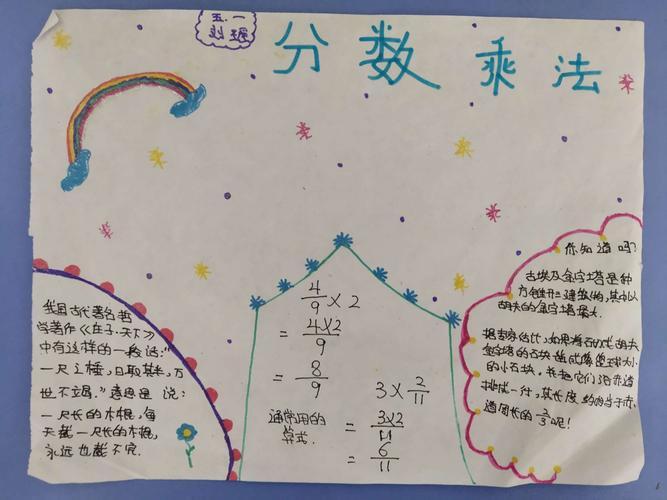 五.一
分数乘法
我国古代著名哲
学著作《庄子·天下》
中有这样的一段话:"
一尺之棰,日取其半,万
世不竭."意思是说:
一尺长的木棍,每
天截一尺长的木棍,
永远也截不完.
4/9×2
=4×2/9
=8/9
通常用的
算式.
3×2/11
=3×2/11
=6/11
你知道吗?
古埃及金字塔是种
方锥形建筑物,其中以
胡夫的金字塔最大.
据专家估计,如果将石式胡夫
金字塔的石块
的小石块.并把它们沿赤道
排成一行,其长度约相当于赤
道周长的2/3呢!